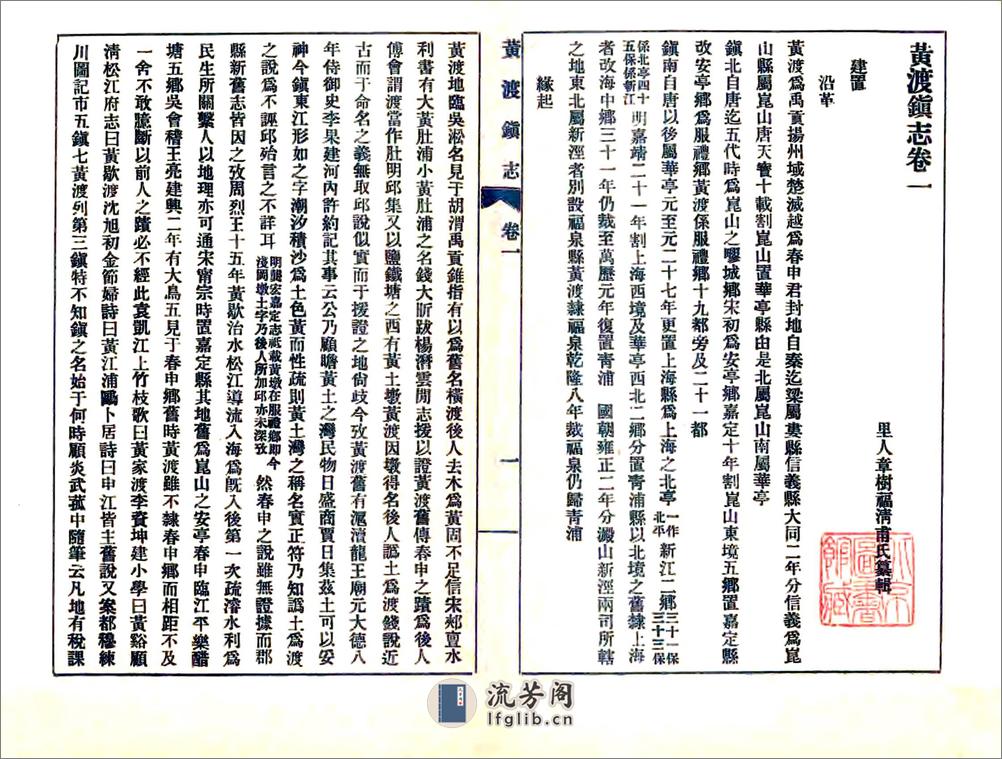 黃渡鎭志卷一
里人章樹福淸甫氏纂輯
建置
沿革
黃渡爲禹貢揚州域楚滅越爲春申君封地自秦迄梁屬婁縣信義縣大同二年分信義爲崑
山縣屬崑山唐天寶十載割崑山置華亭縣由是北屬崑山南屬華亭
鎭北自唐迄五代時爲崑山之㽯城鄉宋初爲安亭鄉嘉定十年割崑山東境五鄉置嘉定縣
改安亭鄉爲服禮鄉黃渡係服禮鄉十九都旁及二十一都
鎭南自唐以後屬華亭元至元二十七年更置上海縣爲上海之北亭一作北平新江二鄉三十一保三十三保
係北亭四十五保係新江明嘉靖二十一年割上海西境及華亭西北二鄉分置靑浦縣以北境之舊隸上海
者改海中鄉三十一年仍裁至萬歷元年復置靑浦 國朝雍正二年分澱山新涇兩司所轄
之地東北屬新涇者別設福泉縣黃渡隸福泉乾隆八年裁福泉仍歸靑浦
緣起
黃渡鎭志 卷一 一
黃渡地臨吳淞名見于胡渭禹貢錐指有以爲舊名橫渡後人去木爲黃固不足信宋郟亶水
利書有大黃肚浦小黃肚浦之名錢大昕跋楊潛雲閒志援以證黃渡舊傳春申之蹟爲後人
傅會謂渡當作肚明邱集又以鹽鐵塘之西有黃土墩黃渡因墩得名後人譌土爲渡錢說近
古而于命名之義無取邱說似實而于援證之地尙歧今攷黃渡舊有滬瀆龍王廟元大德八
年侍御史李果建河內許約記其事云公乃顧瞻黃土之灣民物日盛商賈日集茲土可以妥
神今鎭東江形如之字潮汐積沙爲土色黃而性疏則黃土灣之稱名實正符乃知譌土爲渡
之說爲不誣邱殆言之不詳耳明龔宏嘉定志祇載黃墩在服禮鄉卽今淺岡墩土字乃後人所加邱亦未深攷然春申之說雖無證據而郡
縣新舊志皆因之攷周烈王十五年黃歇治水松江導流入海爲旣入後第一次疏濬水利爲
民生所關繫人以地理亦可通宋甯宗時置嘉定縣其地舊爲崑山之安亭春申臨江平樂醋
塘五鄉吳會稽王亮建興二年有大鳥五見于春申鄉舊時黃渡雖不隸春申鄉而相距不及
一舍不敢臆斷以前人之蹟必不經此袁凱江上竹枝歌曰黃家渡李資坤建小學曰黃谿顧
淸松江府志曰黃歇渡沈旭初金節婦詩曰黃江浦鷗卜居詩曰申江皆主舊說又案都穆練
川圖記市五鎭七黃渡列第三鎭特不知鎭之名始于何時顧炎武菰中隨筆云凡地有稅課
流芳阁
lfglib.cn